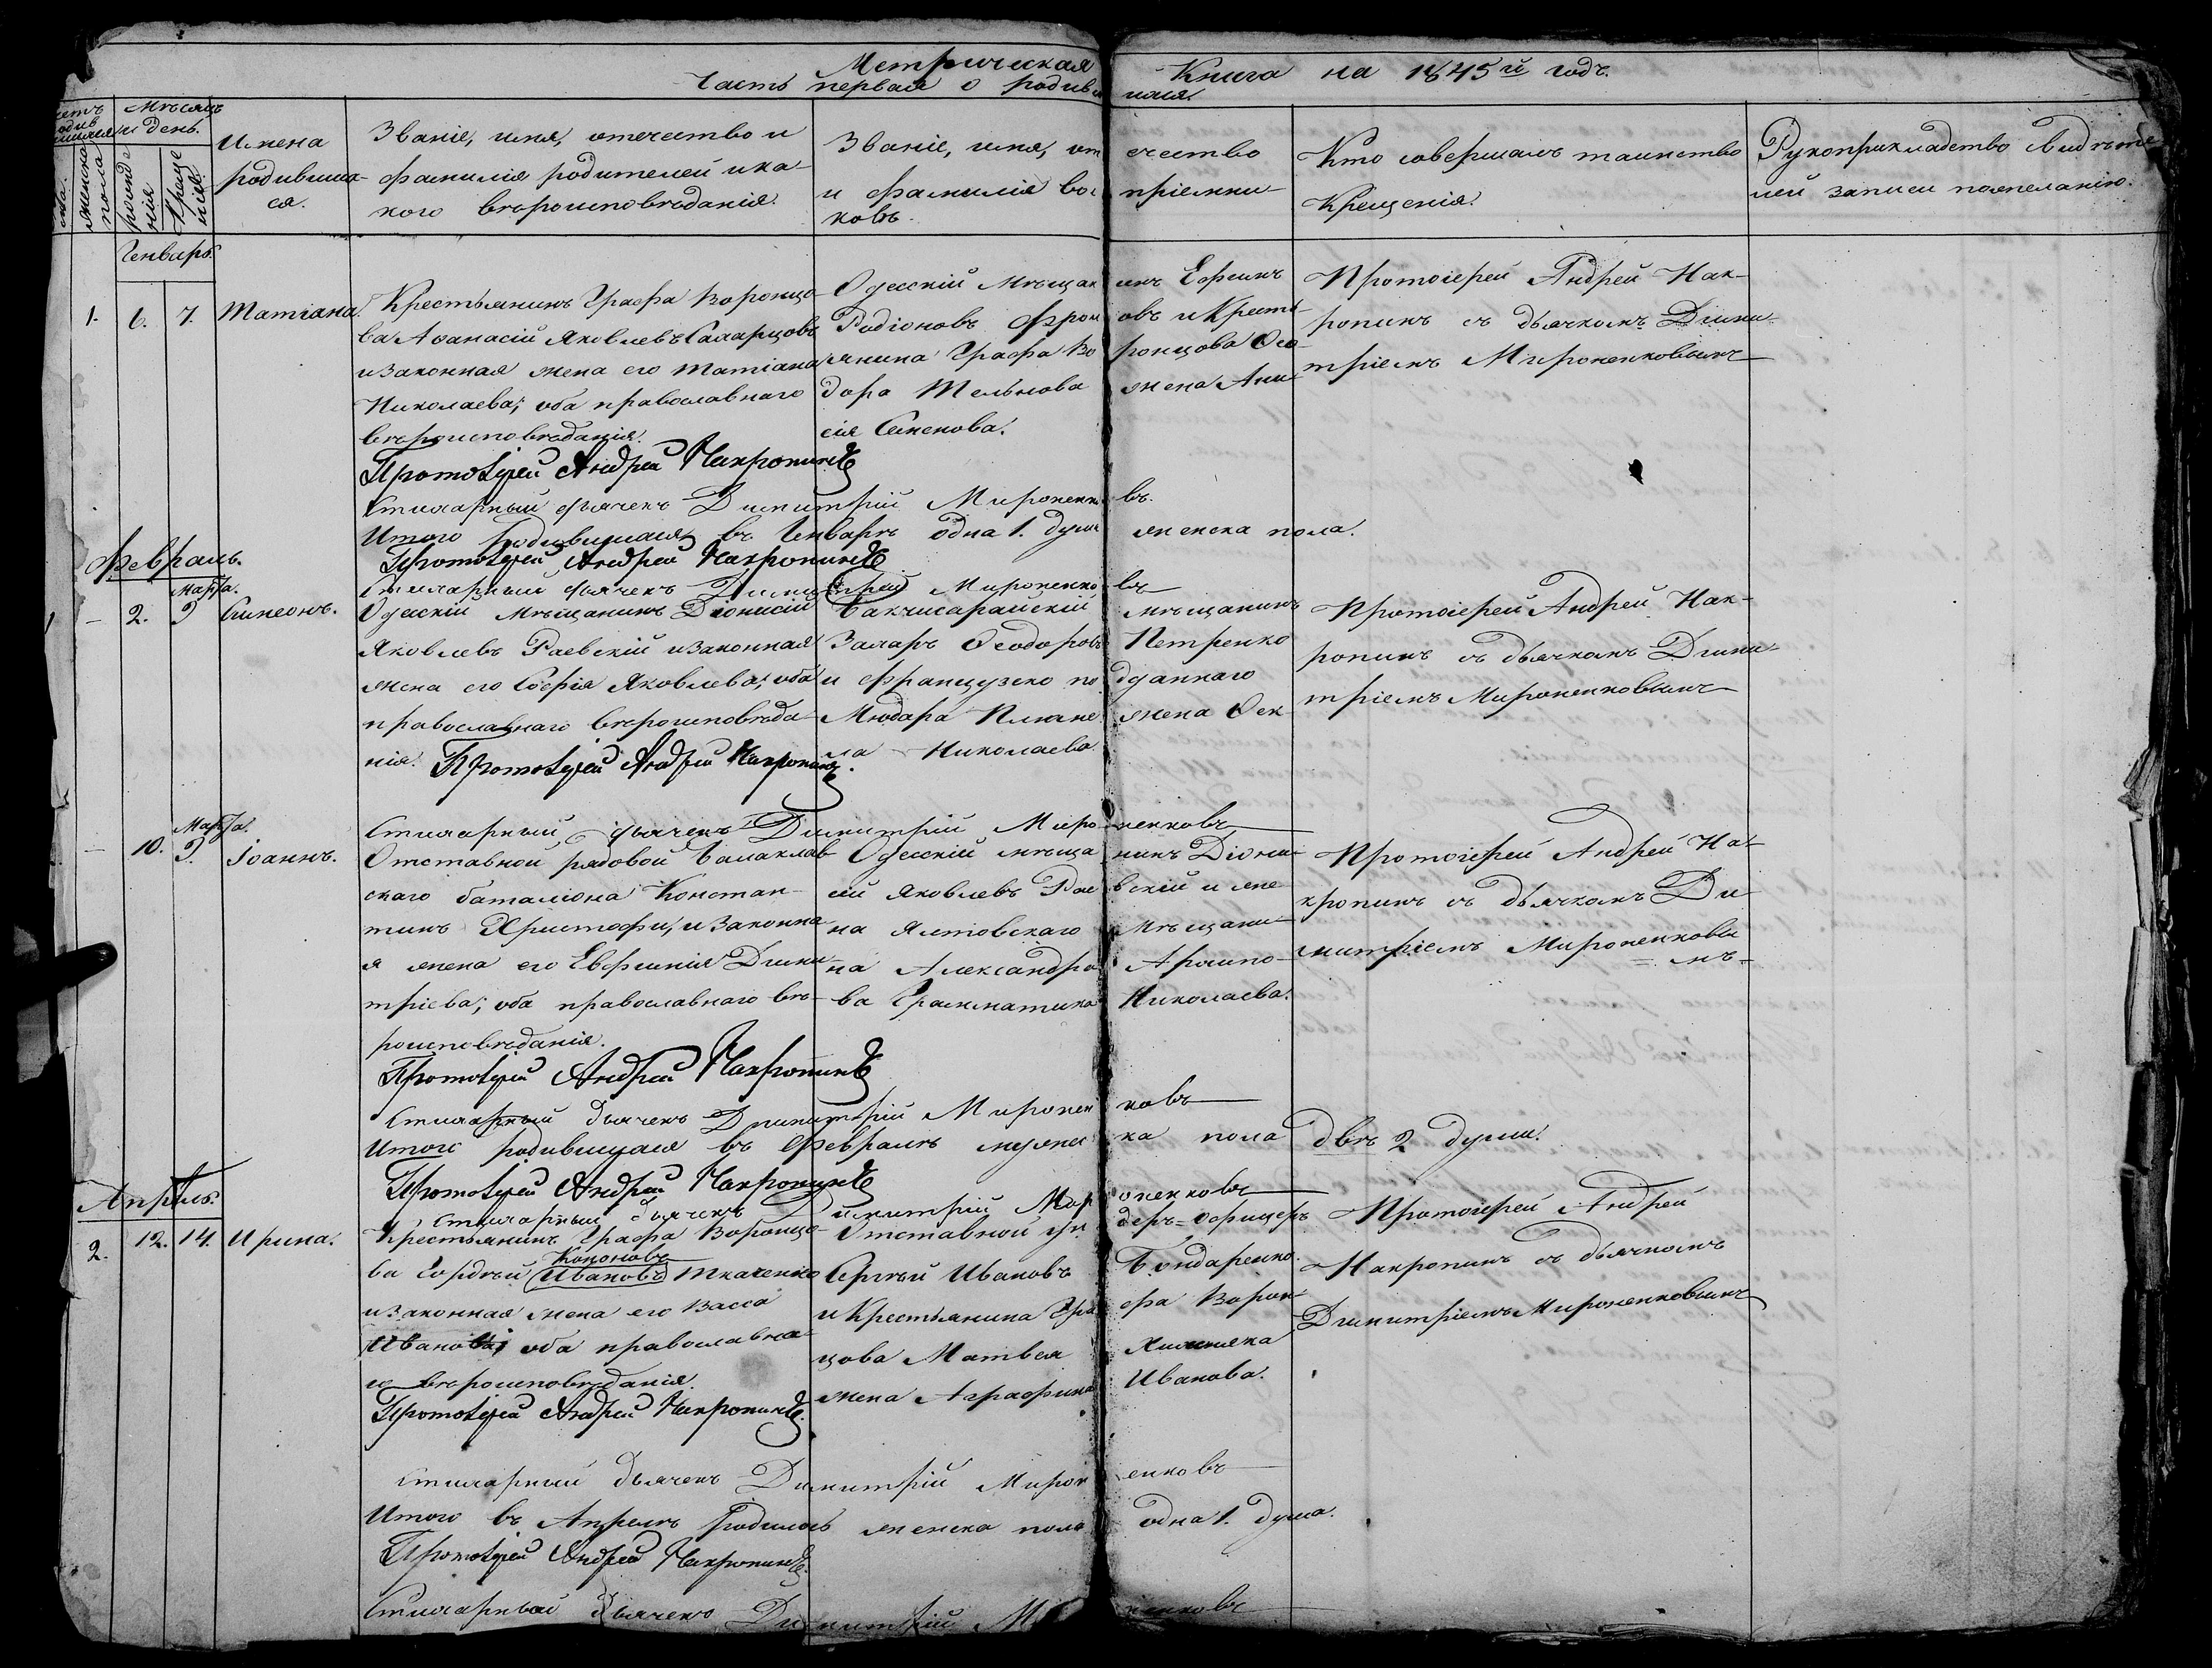 Метрическая Книга на 1845й годъ.
Часть первая о родившихся.
Мѣсяцъ
и день.
женска пола
рожденія
крещенія
Имена
родивших-
ся.
Званіе, имя, отечество и
фамилія родителей и ка-
кого вѣроисповѣданія.
Званіе, имя, отечество
и фамилія воспріемни-
ковъ.
Кто совершалъ таинство
Крещенія.
Рукоприкладство свидѣте
лей записи по желанію.
Генварь.
1. 6. 7. Татіана.
Крестьянинъ Графа Воронцо-
ва Аѳанасій Яковлевъ
и законная жена его Татіана
Николаева; оба православнаго
вѣроисповѣданія.
Одесскій Мѣщанинъ Ефимъ
Родіоновъ и Кресть-
янина Графа Воронцова Ѳео-
дора жена Ани-
сія Семенова.
Протоіерей Андрей Нак-
ропинъ съ дьячкомъ Дими-
тріемъ Мироненковымъ
Протоіерей Андрей Накропинъ
Стихарный дьячекъ Димитрій Мироненковъ.
Итого родившихся въ Генварѣ одна 1. душа женска пола.
Протоіерей Андрей Накропинъ
Стихарный дьячекъ Димитрій Мироненковъ
Февраль.
Марта.
2. 3 Симеонъ.
Одесскій Мѣщанинъ Діонисій
Яковлевъ Раевскій и законная
жена его Софія Яковлева; оба
православнаго вѣроисповѣда-
нія.
Бакчисарайскій мѣщанинъ
Захаръ Ѳеодоровъ Петренко
и Французско подданнаго
жена Ѳек-
ла Николаева.
Протоіерей Андрей Нак-
ропинъ съ дьячкомъ Дими-
тріемъ Мироненковымъ
Протоіерей Андрей Накропинъ.
Стихарный дьячекъ Димитрій Мироненковъ
Марта.
10. 3. Іоаннъ.
Отставной рядовой Балаклав-
скаго баталіона Констан-
тинъ Христофи, и законна-
я жена его Евфимія Дими-
тріева; оба православнаго вѣ-
роисповѣданія.
Одесскій мѣщанинъ Діони-
сій Яковлевъ Раевскій и же-
на Ялтовскаго Мѣщани-
на Александра
ва Николаева.
Протоіерей Андрей На-
кропинъ съ дьячкомъ Ди-
митріемъ Мироненковы
мъ
Протоіерей Андрей Накропинъ
Стихарный дьячекъ Димитрій Мироненковъ
Итого родившихся въ Февралѣ мужеска пола двѣ 2 души.
Протоіерей Андрей Накропинъ
Стихарный дьячекъ Димитрій Мироненковъ
Апрѣль.
2. 12. 14. Ирина.
Крестьянинъ Графа Воронцо-
Кононовъ
ва Гордѣй Ивановъ Ткаченко
и законная жена его Васса
Иванова; оба православна-
го вѣроисповѣданія.
Отставной ундеръ-офицеръ
Сергѣй Ивановъ Бондаренко
и Крестьянина Графа Ворон-
цова Матвея
жена Аграфина Иванова.
Протоіерей Андрей
Накропинъ съ дьячкомъ
Димитріемъ Мироненковымъ
Протоіерей Андрей Накропинъ.
Стихарный дьячекъ Димитрій Мироненковъ
Итого въ Апрелѣ родилось женска пола одна 1. душа.
Протоіерей Андрей Накропинъ.
Стихарный дьячекъ Димитрій Мироненковъ